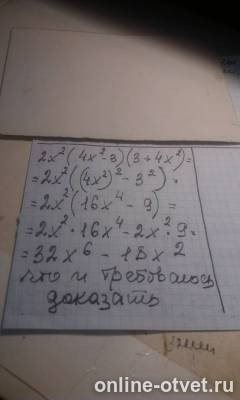 2x²(4x²-3)(3+4x²)=
=2x²((4x²)²-3²)=
=2x²(16x⁴-9)=
=2x²·16x⁴-2x²·9=
=32x⁶-18x²
что и требовалось
доказать
online-otvet.ru